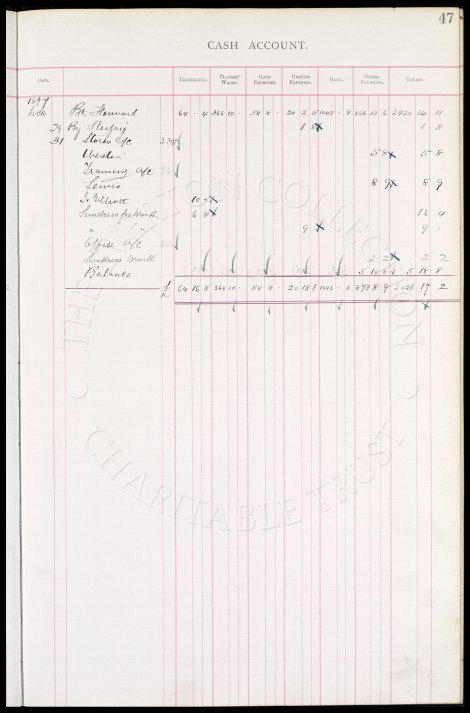 47
CASH ACCOUNT.
DATE. TRAVELLING. PLAYERS' WAGES. GATE EXPENSES. GROUND EXPENSES. OTHER PAYMENTS. TOTALS.
1897
Dec Bt Forward 64 . 4 368 10 . 58 8 . 20 2 5 8 866 13 6 2420 14 11
29 By 1 8 1 8
31 Stores A/c
5 8 5 8
Training A/c
Lewis 8 9 8 9
Jo Elliott 10 .
Sundries for Month 6 4 16 4
" " 9 . 9 .
Office A/c
Sundries Month 2 2 2 2
Balance 5 18 8 5 18 8
£ 64 16 8 368 10 . 58 8 . 20 18 1 8 873 8 9 2428 17 2
THE EVERTON COLLECTION
CHARITABLE TRUST